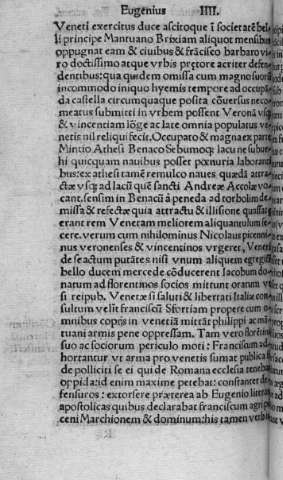 Eugenius IIII.
Veneti exercitus duce ascitoque ĩ societatẽ
li principe Mantuano Brixiam aliquot mensibus
oppugnat eam & ciuibus & frãcisco barbaro
ro doctissimo atque vrbis prętore acriter
dentibus: qua quidem omissa cum magno suorũ
incommodo iniquo hyemis tempore ad
da castella circumquaque posita cõuersus
meatus submitti in vrbem possent Veronã
& vincentiam lõge ac late omnia populatus
netis nil reliqui fecit. Occupato & magna ex
Mintio Athesi Benaco lacu ne
hi quicquam nauibus possẽt pœnuria
bus: ex athesi tamẽ remulco naues quædã
ctæ ad lacũ quẽ sancti Andreæ Accolæ
cant. sensim in Benacũ á peneda ad torbolim
missã & refectæ quia attractu & illisione
erant rem Venetam meliorem aliquantulum
cere. verum cum nihilominus Nicolaus
nus veronenses & vincentinos vrgeret,
de se actum putãtes nisi vnum aliquem
bello ducem mercede cõducerent Iacobum
natum ad florentinos socios mittunt oratum
si reipub. Venetæ si saluti & libertati Italiæ
sultum velit franciscũ Sfortiam propere cum
mnibus copijs in venetiã mittãt philippi ac
tuani armis pene oppressam. Tam vero
suo ac sociorum periculo moti: Franciscum
hortantur vt arma pro venetis sumat publica
de polliciti se ei qui de Romana ecclesia
oppida id enim maxime petebat: constanter
fensuros: extorsere præterea ab Eugenio
apostolicas quibus declarabat franciscum
ceni Marchionem & dominum: his tamen